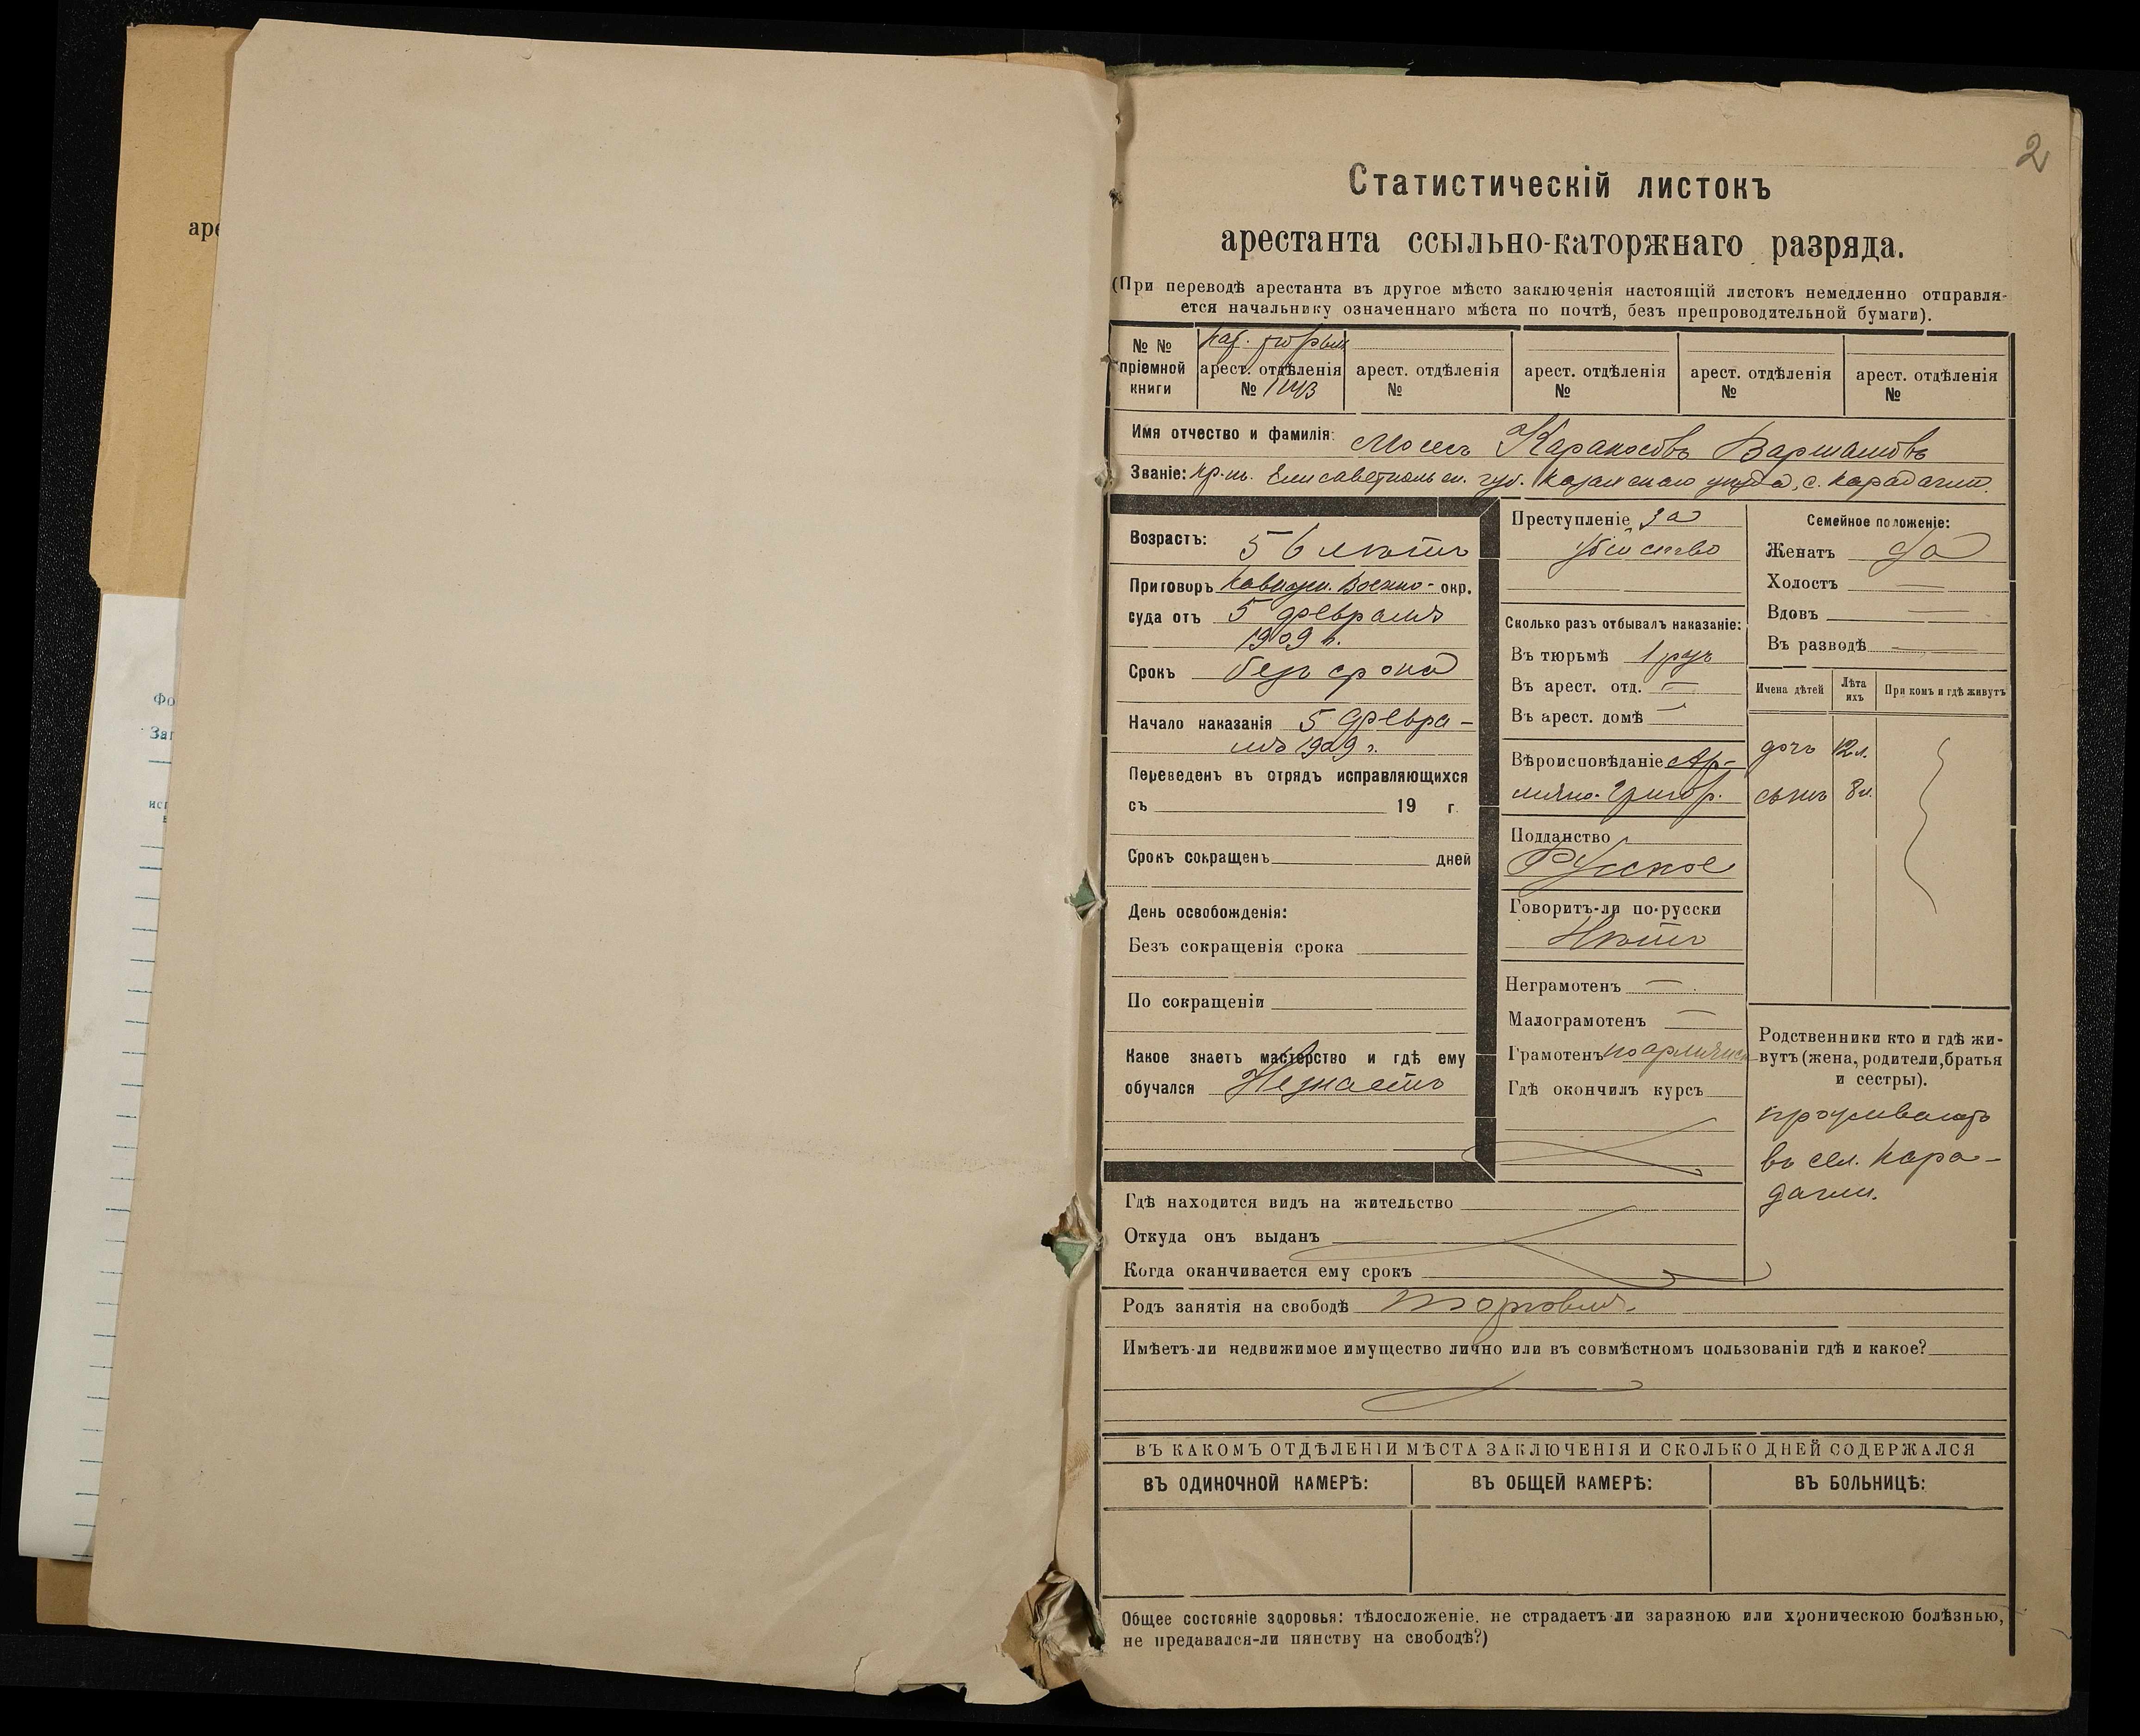 аре
Фо
Заг
2
Статистическій листокъ
арестанта ссыльно-каторжнаго разряда.
(При переводѣ арестанта въ другое мѣсто заключенія настоящій листокъ немедленно отправля-
ется начальнику означеннаго мѣста по почтѣ, безъ препроводительной бумаги).
№ №
пріемной
книги
арест. отдѣленія
№
арест. отдѣленія
№
арест. отдѣленія
№
арест. отдѣленія
№
арест. отдѣленія
№
Имя отчество и фамилія:
Званіе: Елисаветпольск. губ. уѣзда, с.
Возрастъ: 56 лѣтъ
Приговоръ Кавказск. Военно- окр.
суда отъ 5 февраля
1909 г.
Срокъ безъ срока
Начало наказанія 5 февра-
ля 1909 г.
Переведенъ въ отрядъ исправляющихся
съ 19 г.
Срокъ сокращенъ дней
День освобожденія:
Безъ сокращенія срока
По сокращеніи
Какое знаетъ мастерство и гдѣ ему
обучался Незнаетъ
Преступленіе за
убійство
Сколько разъ отбывалъ наказаніе:
Въ тюрьмѣ 1 разъ
Въ арест. отд. —
Въ арест. домѣ —
Вѣроисповѣданіе Ар-
мяно-Григор.
Подданство
Русское
Говоритъ-ли по-русски
Нѣтъ
Неграмотенъ —
Малограмотенъ —
Грамотенъ по армянск
Гдѣ окончилъ курсъ
Семейное положеніе:
Женатъ да
Холостъ —
Вдовъ —
Въ разводѣ —
Имена дѣтей
Лѣта
ихъ
При комъ и гдѣ живутъ
дочь 12 л.
сынъ 8 л.
Родственники кто и гдѣ жи-
вутъ (жена, родители, братья
и сестры).
проживаютъ
въ сел. Кара-
дагли.
Гдѣ находится видъ на жительство
Откуда онъ выданъ
Когда оканчивается ему срокъ
Родъ занятія на свободѣ торговля.
Имѣетъ-ли недвижимое имущество лично или въ совмѣстномъ пользованіи гдѣ и какое?
ВЪ КАКОМЪ ОТДѢЛЕНІИ МѢСТА ЗАКЛЮЧЕНІЯ И СКОЛЬКО ДНЕЙ СОДЕРЖАЛСЯ
ВЪ ОДИНОЧНОЙ КАМЕРѢ:
ВЪ ОБЩЕЙ КАМЕРѢ:
ВЪ БОЛЬНИЦѢ:
Общее состояніе здоровья: тѣлосложеніе, не страдаетъ-ли заразною или хроническою болѣзнью,
не предавался-ли пянству на свободѣ?)